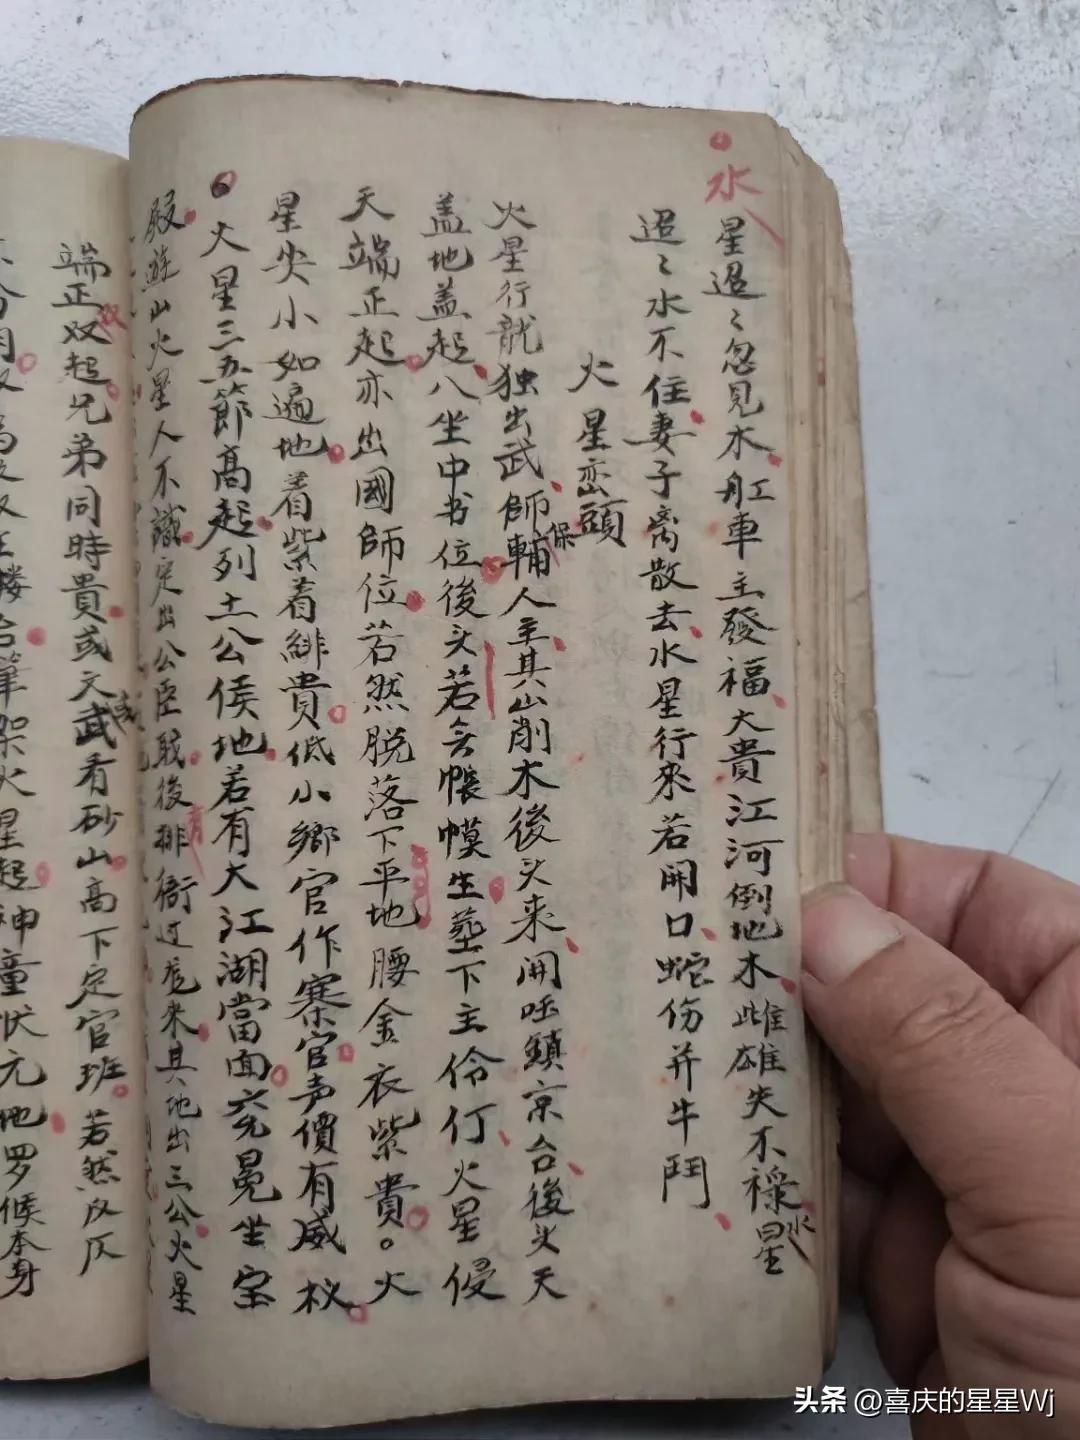 水
星迢〻忽見木舡車主發福大貴江河倒地木雌雄失不祿水星
迢〻水不住妻子离散去水星行來若開口蛇伤并牛鬥
火星巒頭
火星行龍独出武師輔保人主其山削木後头来開呸鎮京台後头天
盖地盖起八坐中书位後头若無帳幙生塟下主伶仃火星侵
天端正起亦出國師位若然脱落下平地腰金衣紫貴。火
星尖小如遍地着紫着緋貴低小鄉官作寨官声價有威权
火星三五節高起列土公侯地若有大江湖當面兖冕坐宝
殿遊山火星人不識定出公臣戝後排衙过庞来其地出三公火星
端正双起兄弟同時貴或文或武看砂山高下定官班若然反仄
楼台筆架火星起神童状元地罗候本身
头条 @喜庆的星星Wj